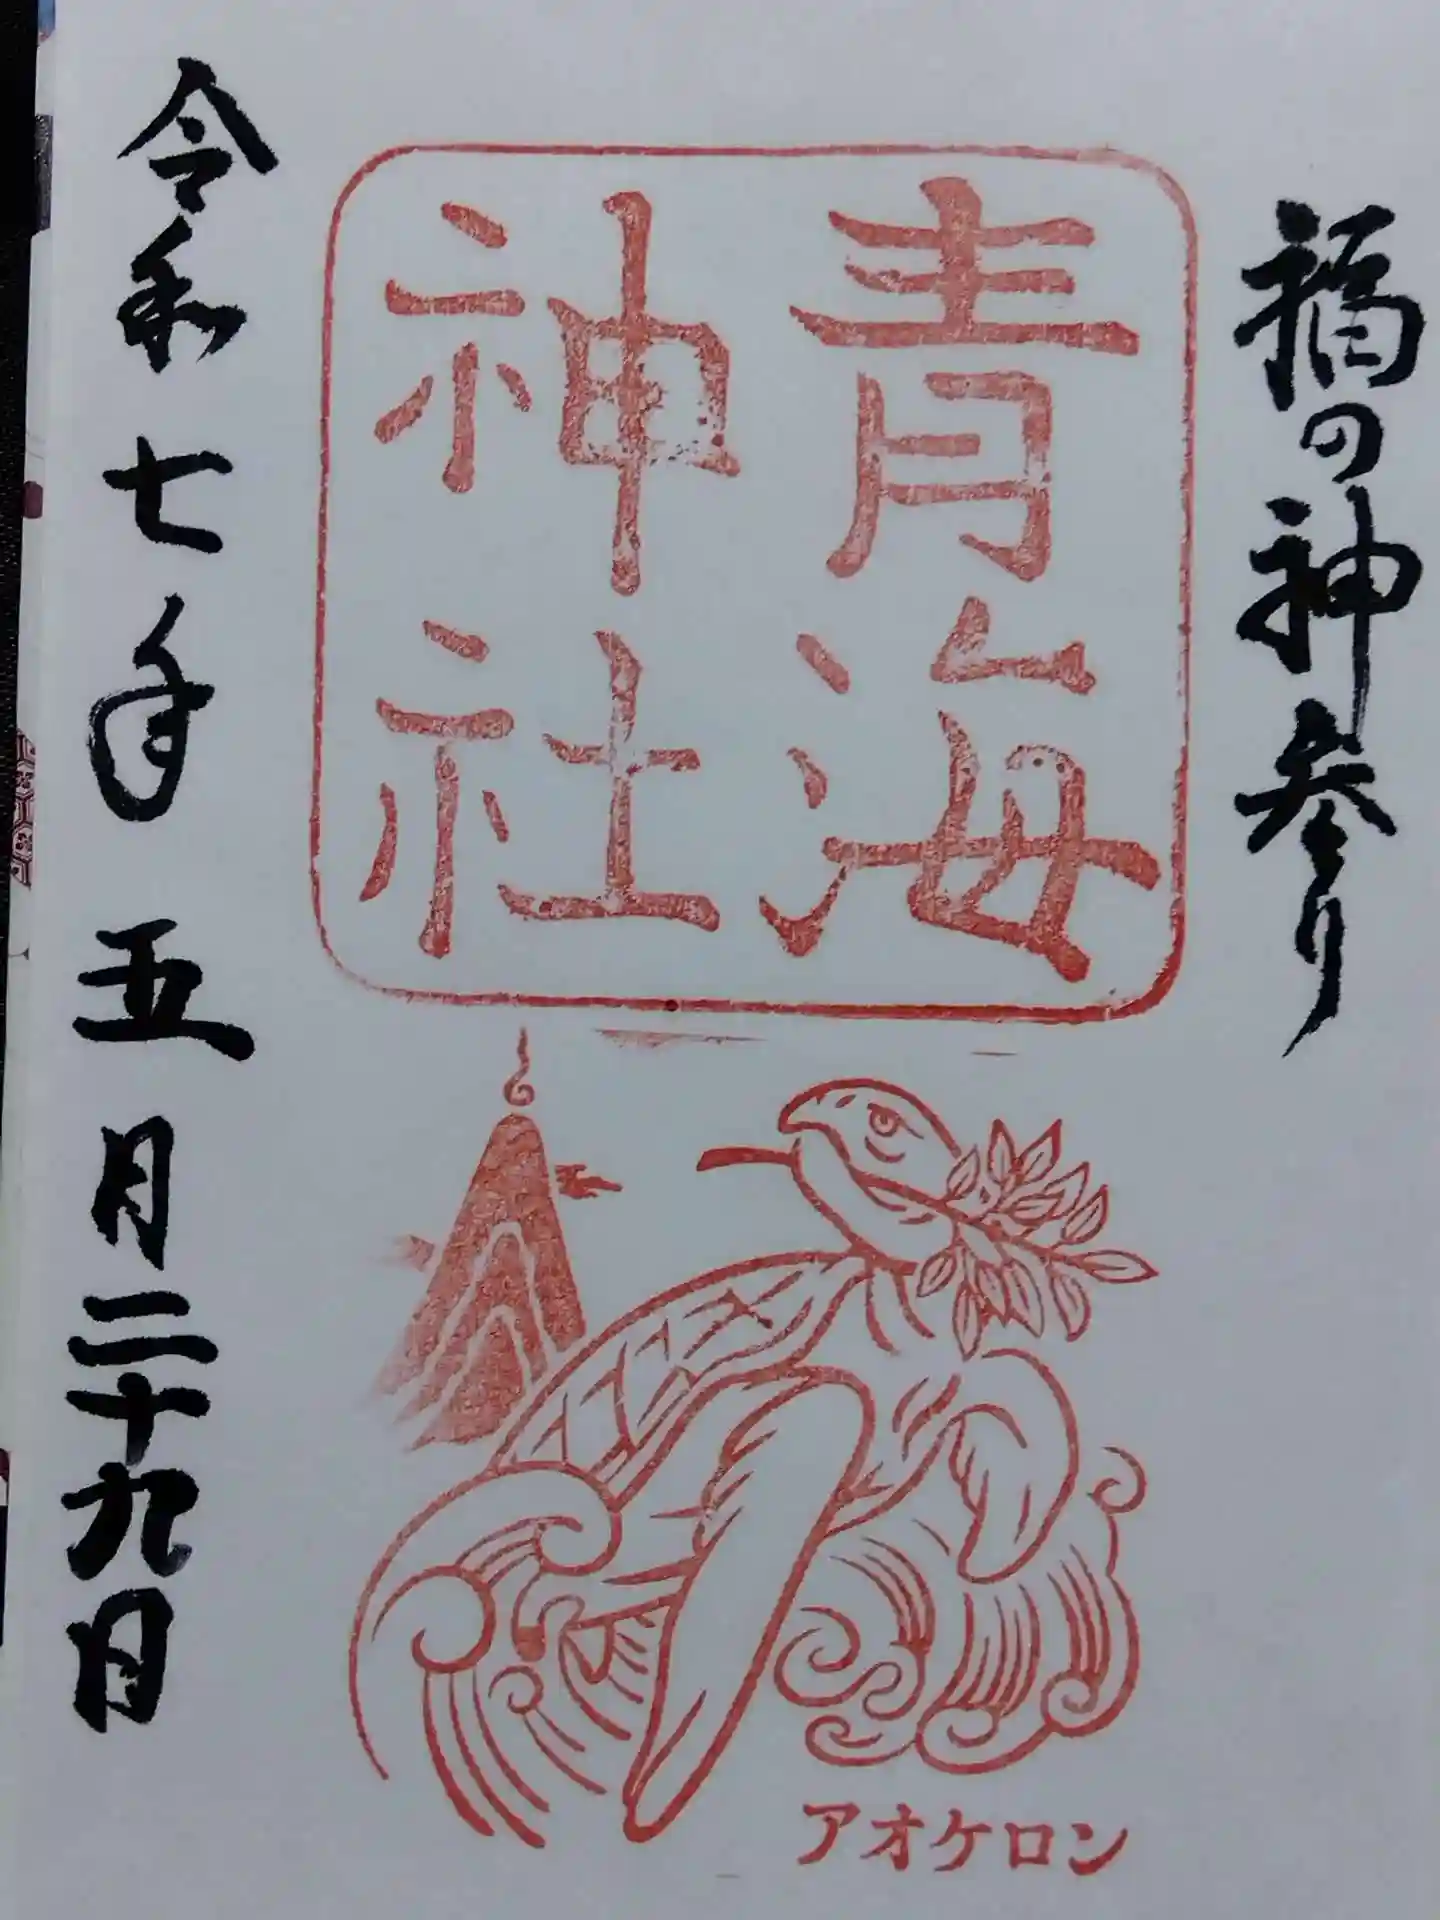 福の神参り
青海
神社
令和七年五月二十九日
アオケロン